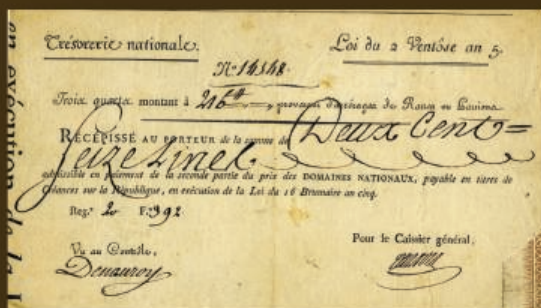 Trésorerie nationale.
Loi du 2 Ventôse an 5.
N.º 14148.
Trois quarts montant à 216₶ d'arrérages de Rentes ou Pensions.
RÉCÉPISSÉ AU PORTEUR de la somme de Deux Cent =
Seize Livres
admissible en paiement de la seconde partie du prix des DOMAINES NATIONAUX, payable en titres de
Créances sur la République, en exécution de la Loi du 16 Brumaire an cinq.
Reg.e 20 F.o 392
Vu au Contrôle,
Pour le Caissier général,
Denauroy
en exécution de la L